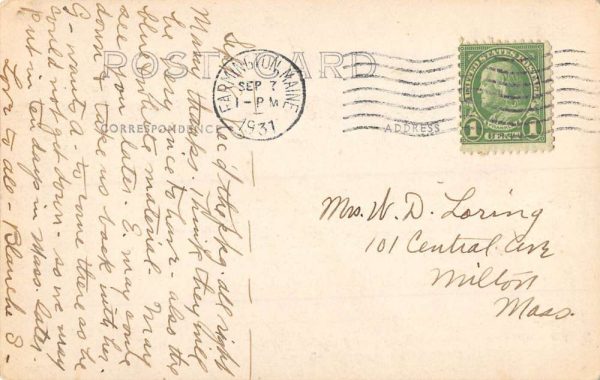 POST CARD
CORRESPONDENCE
ADDRESS
FARMINGTON, MAINE
SEP 7
1-PM
1931
UNITED STATES POSTAGE
1 CENT 1
Mrs. W. D. Loring
101 Central Ave
Milton
Mass.
the pkg. all right
Many thanks. Think they will
be very nice to have - also the
blue & white material. May
see you later. E. may come
down & take us back with her.
G - wants A to come there as he
could not get down - so we may
put in ten days in Mass. later.
Love to all - Blanche S -